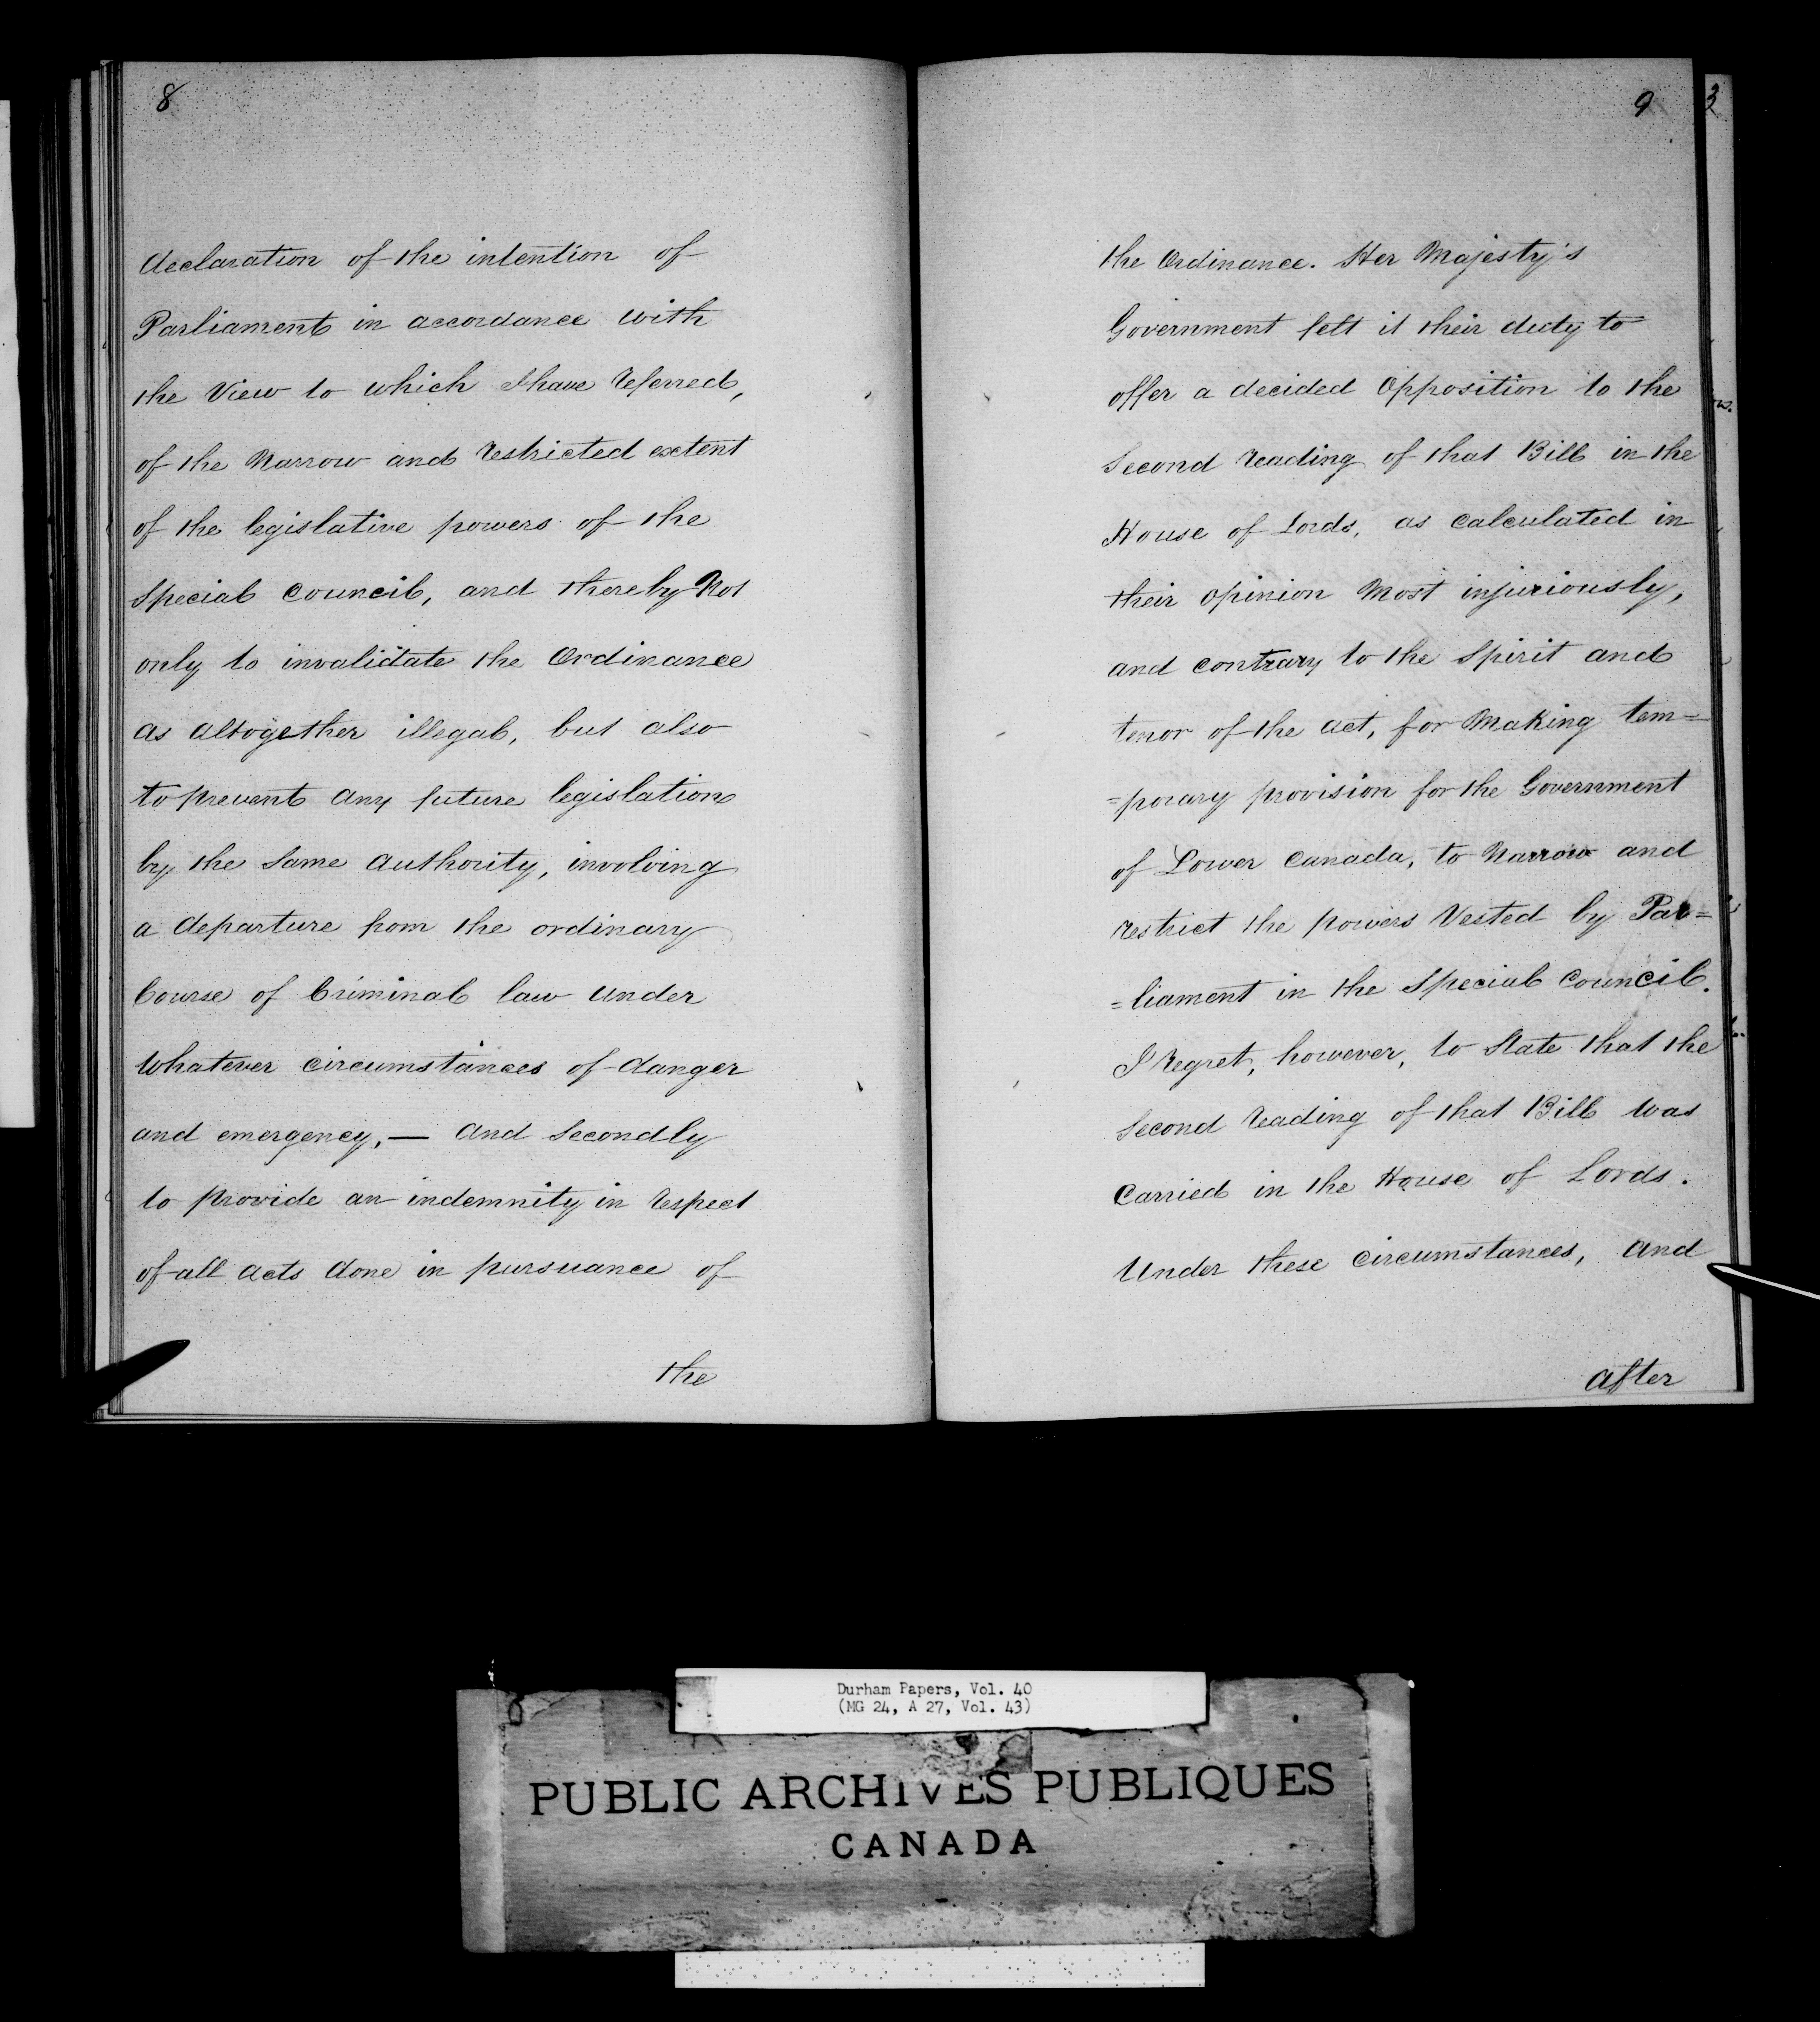 8
declaration of the intention of
Parliament in accordance with
the View to which I have referred,
of the Narrow and restricted extent
of the legislative powers of the
Special Council, and thereby Not
only to invalidate the Ordinance
as altogether illegal, but also
to prevent any future legislation
by the Same authority, involving
a departure from the ordinary
Course of Criminal law under
Whatever circumstances of danger
and emergency, — And Secondly
to provide an indemnity in respect
of all acts done in pursuance of
the
9
the Ordinance. Her Majesty's
Government felt it their duty to
offer a decided Opposition to the
Second reading of that Bill in the
House of Lords, as calculated in
their opinion Most injuriously,
and contrary to the Spirit and
tenor of the act, for Making tem=
=porary provision for the Government
of Lower Canada, to Narrow and
restrict the powers Vested by Par=
=liament in the Special Council.
I Regret, however, to State that the
Second reading of that Bill was
Carried in the House of Lords.
Under these circumstances, And
after
3
Durham Papers, Vol. 40
(MG 24, A 27, Vol. 43)
PUBLIC ARCHIVES PUBLIQUES
CANADA